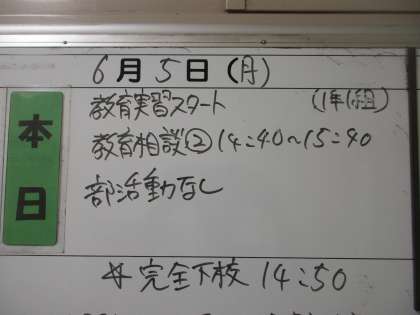 6月5日(月)
本日
教育実習スタート (1年1組)
教育相談② 14:40〜15:40
部活動なし
☆完全下校 14:50